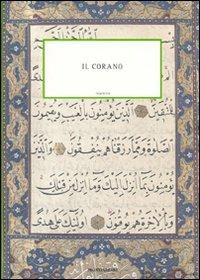 IL CORANO
لِلْمُتَّقِينَ الَّذِينَ يُؤْمِنُونَ بِالْغَيْبِ وَيُقِيمُونَ
الصَّلٰوةَ وَمِمَّا رَزَقْنَاهُمْ يُنْفِقُونَ وَالَّذِينَ
يُؤْمِنُونَ بِمَا اُنْزِلَ اِلَيْكَ وَمَا اُنْزِلَ مِنْ قَبْلِكَ
وَبِالْاٰخِرَةِ هُمْ يُوقِنُونَ اُولٰئِكَ عَلٰى هُدًى
MONDADORI